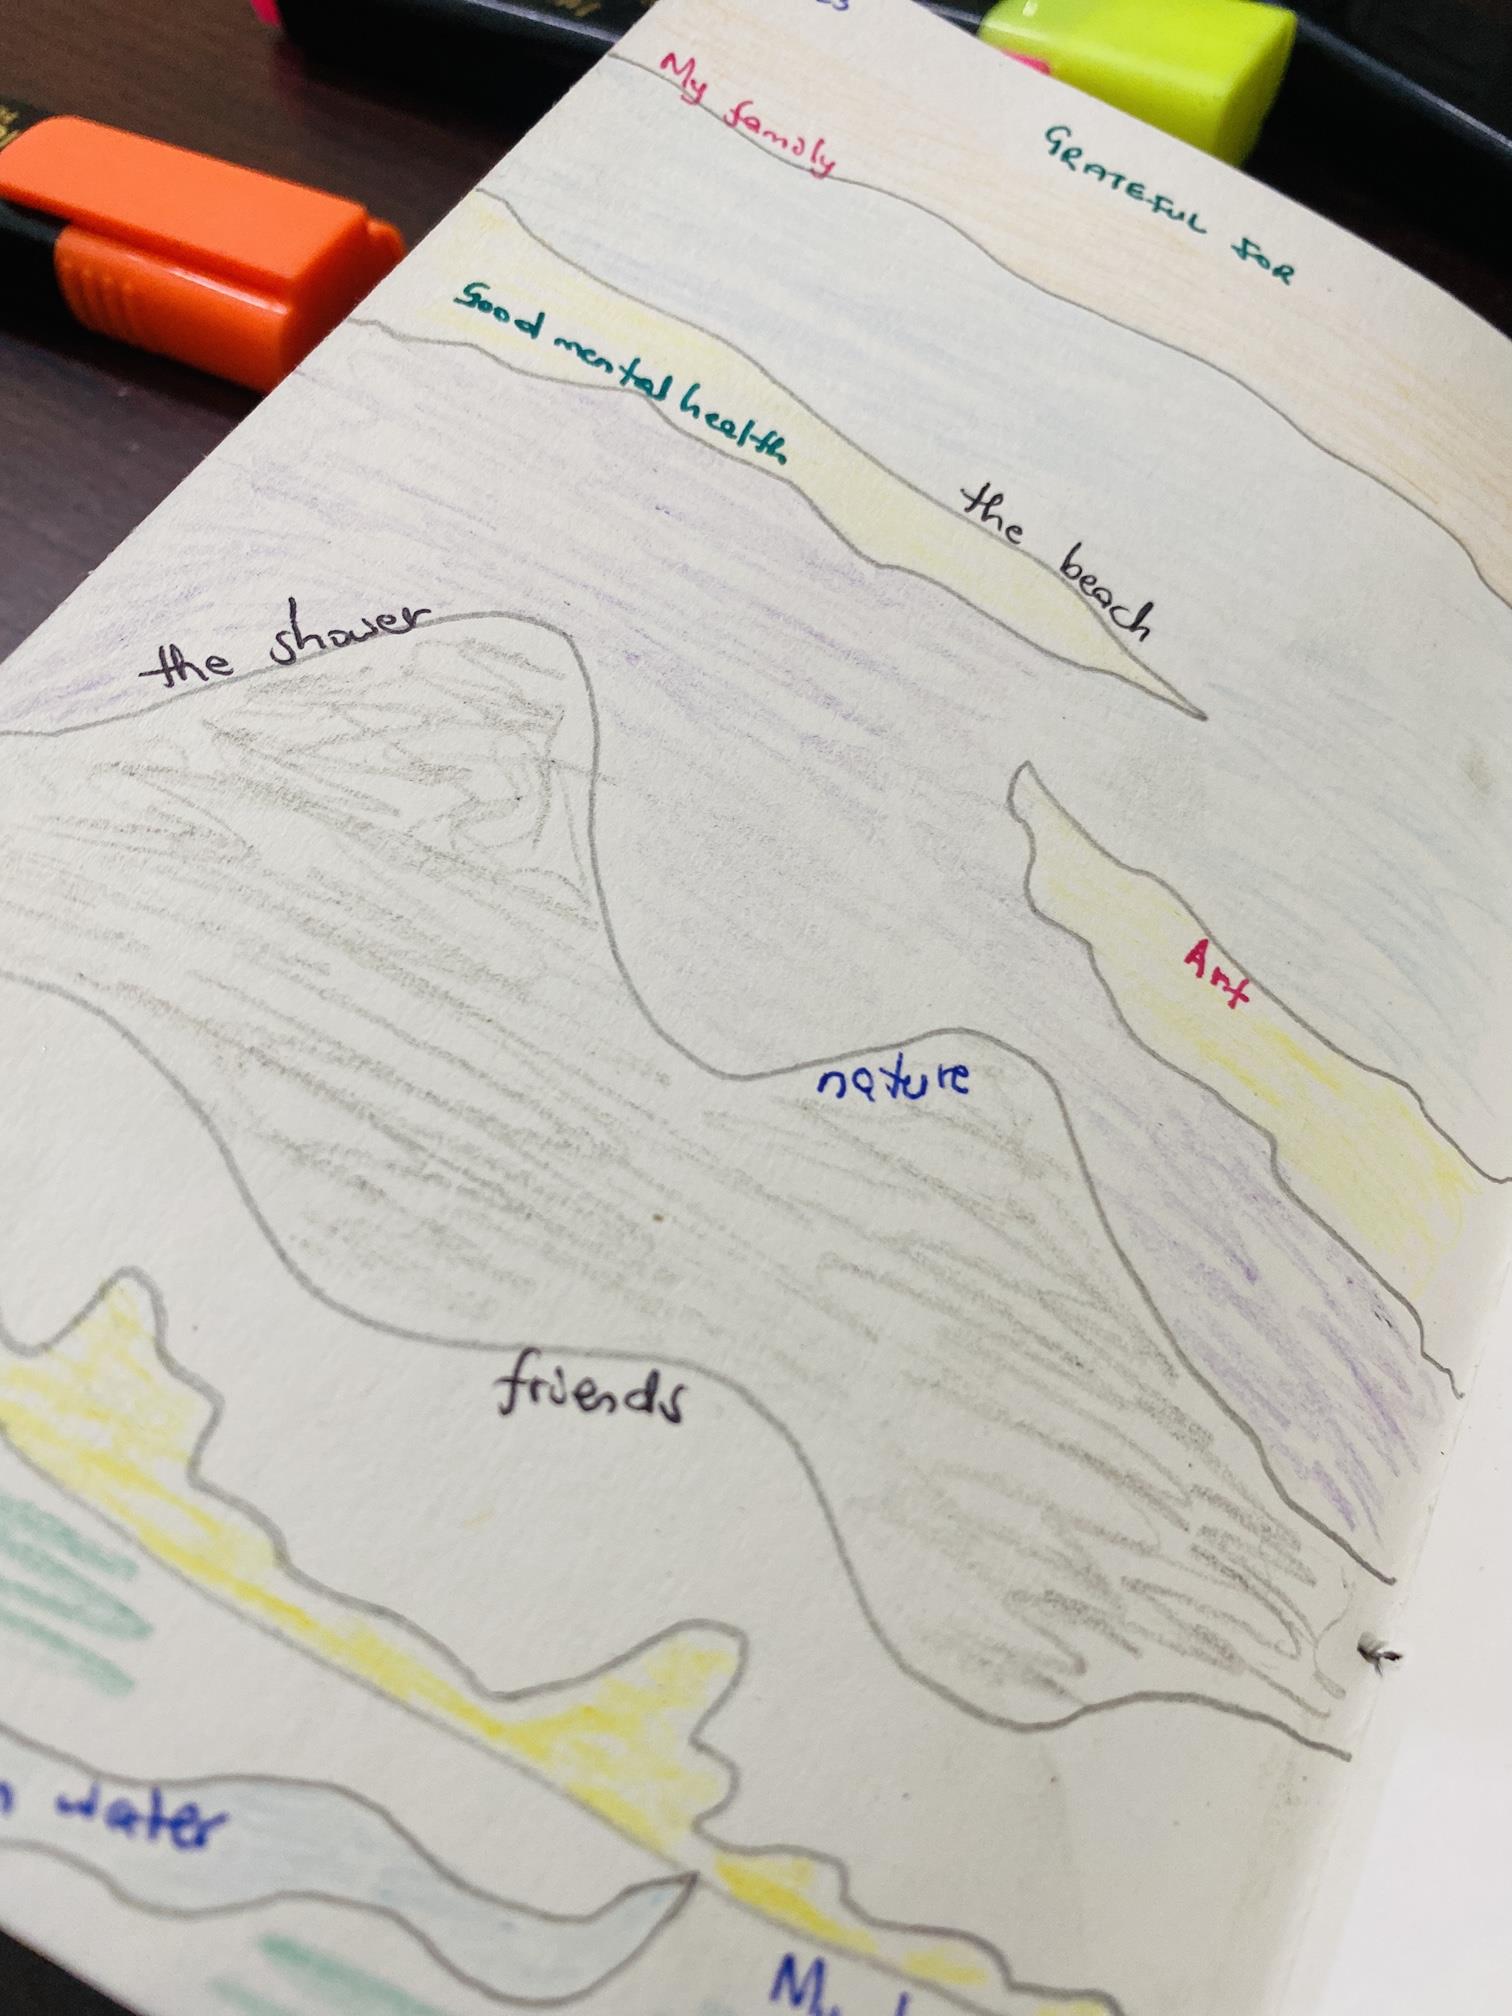 GRATEFUL FOR
My family
Good mental health
the beach
the shower
Art
nature
friends
water